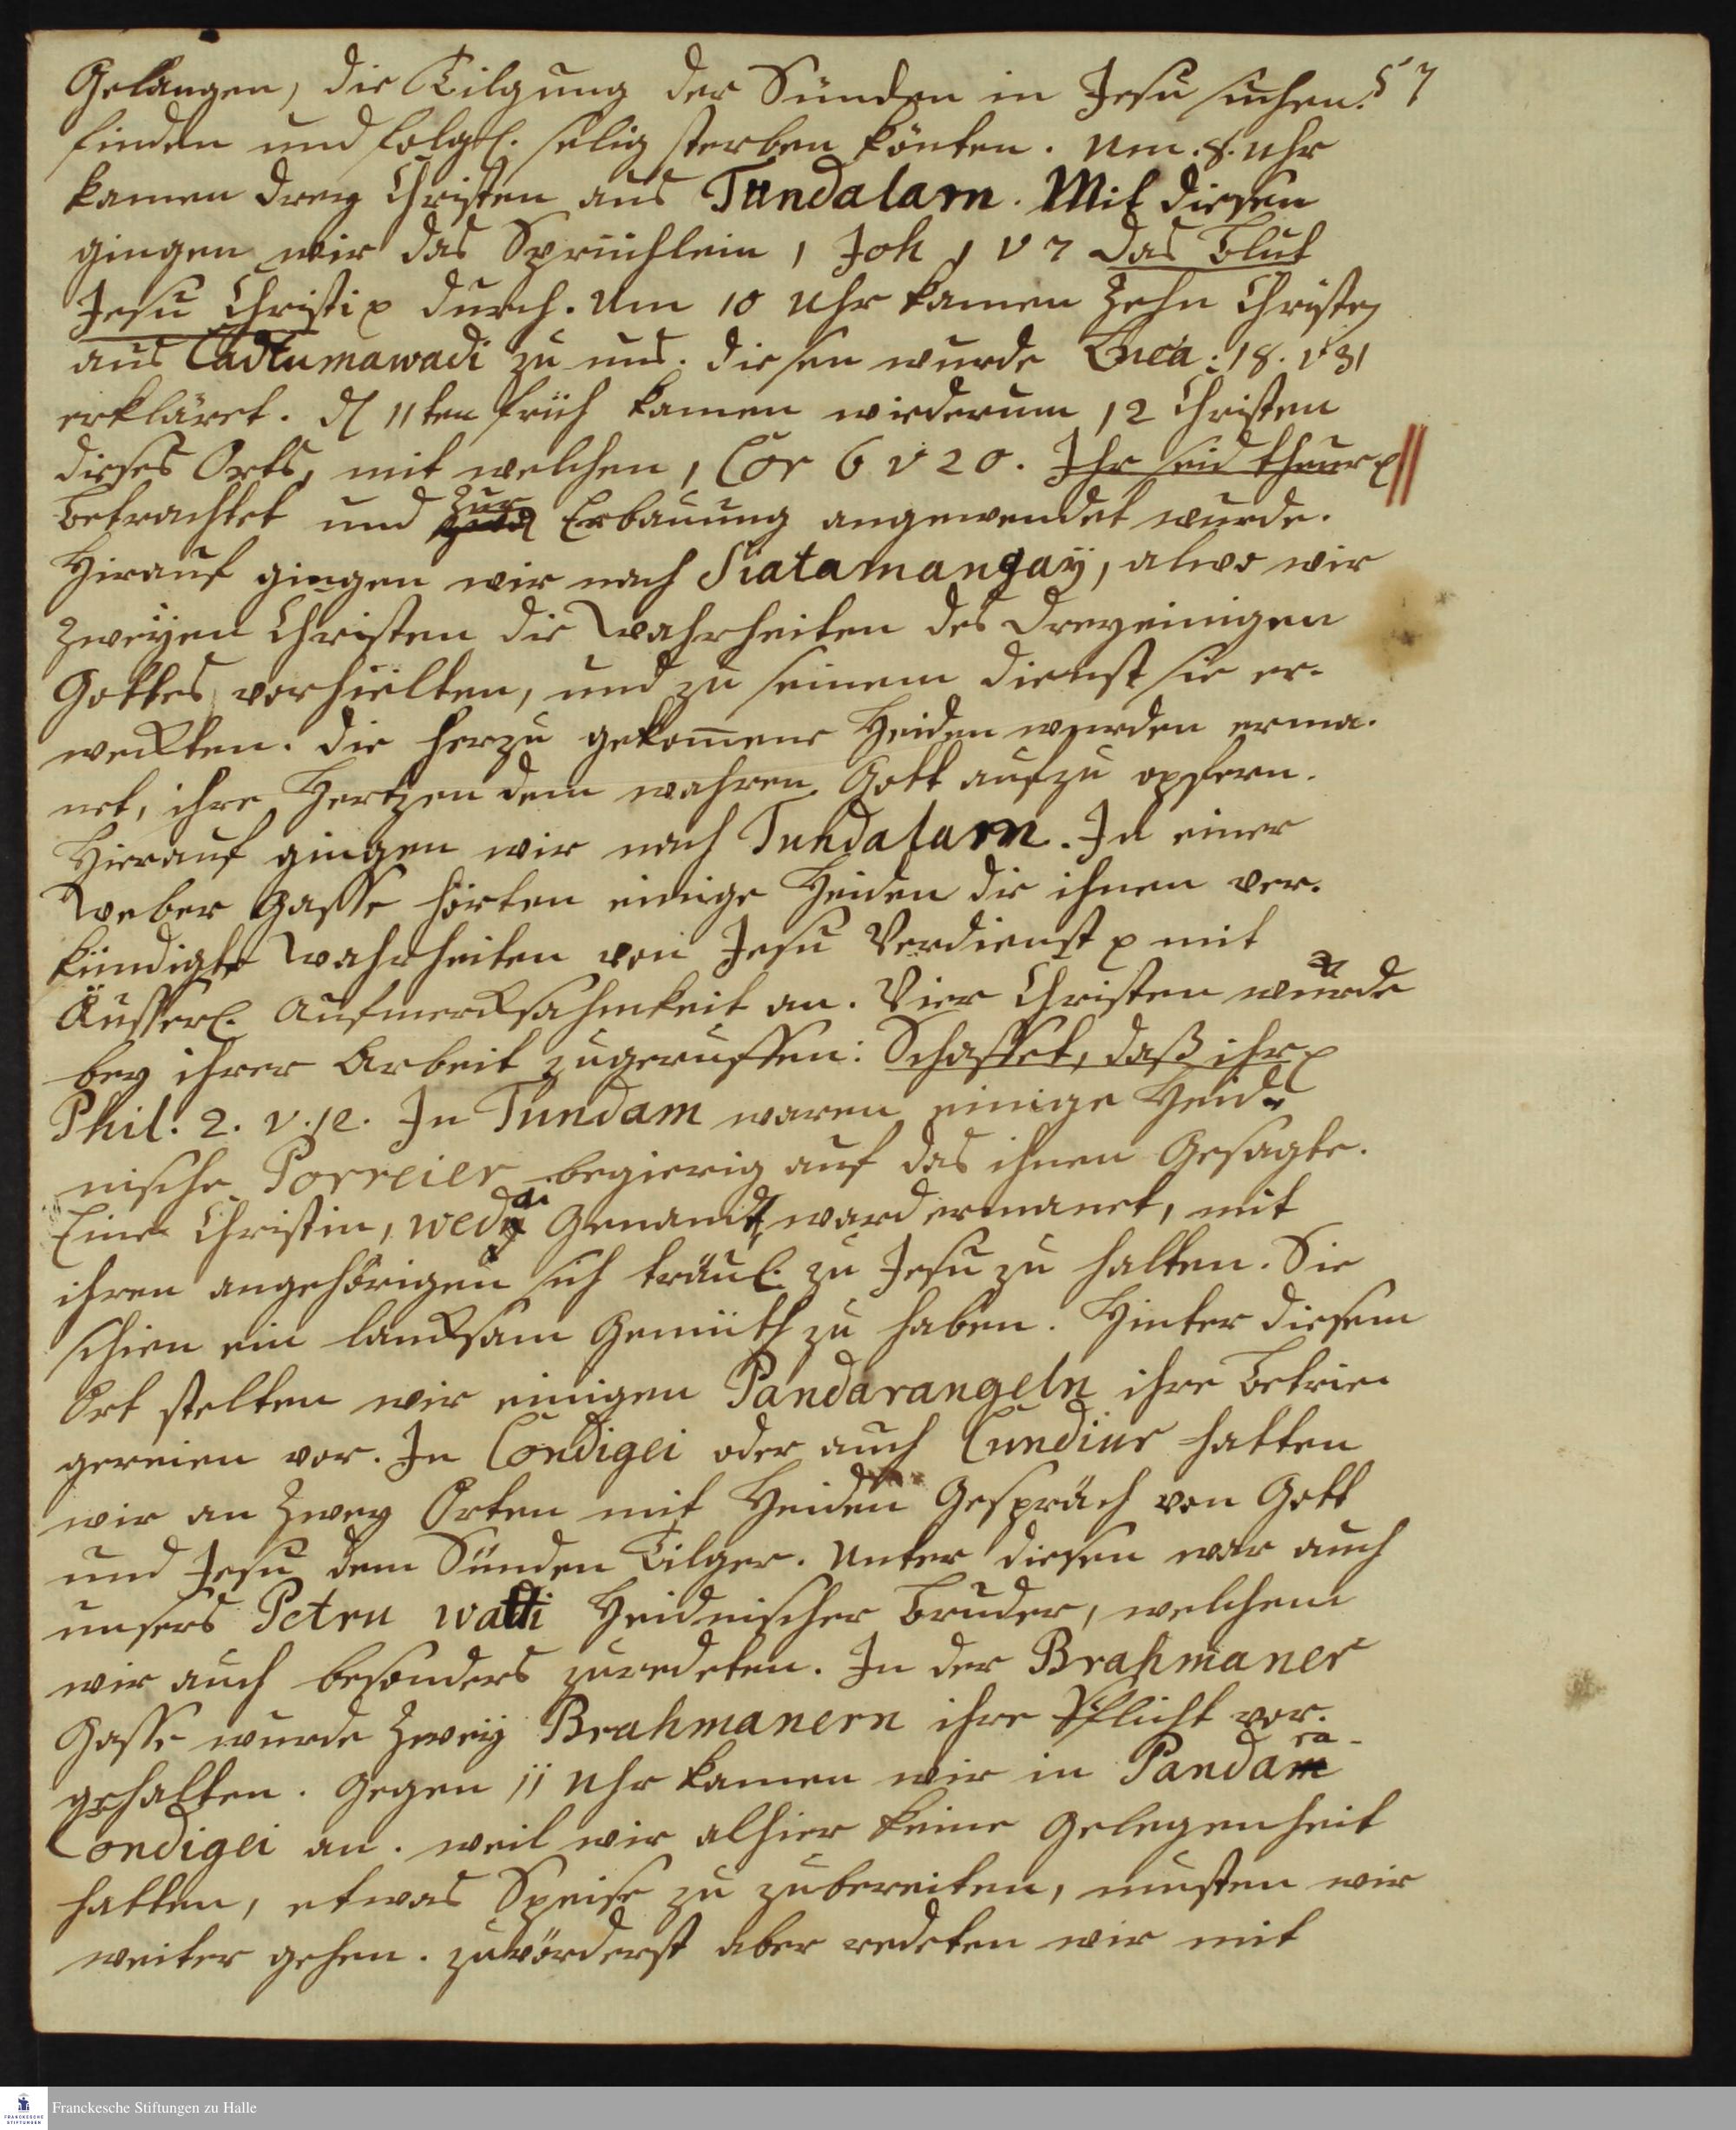 Gelangen, die Tilgung der Sünden in Jesu suchen. 57
finden und folgl. selig sterben könten. Um. 8. Uhr
kamen drey Christen aus Tundalam. Mit diesen
gingen wir das Sprüchlein 1 Joh 1 v 7 das Blut
Jesu Christi p durch. Um 10 Uhr kamen Zehn Christen
aus Cadtumawadi zu uns. diesen wurde Luca: 18. v 31
erkläret. d 11ten früh kamen wiederum 12 Christen
dieses Orts, mit welchen 1 Cor 6 v 20. Ihr seid theur p
betrachtet und zur Erbauung angewendet wurde.
Hirauf gingen wir nach Siatamangay, alwo wir
Zweyen Christen die Wahrheiten des dreyeinigen
Gottes vorhielten, und zu seinem dienst sie er-
weckten. die herzu gekom̄ene Heiden wurden erma-
net, ihre Hertzen dem wahren Gott aufzu opfern.
Hierauf gingen wir nach Tundalam. In einer
Weber Gasse hörten einige Heiden die ihnen ver-
kündigte Wahrheiten von Jesu Verdienst p mit
Äusserl. Aufmercksahmkeit an. Vier Christen wurde
bey ihrer Arbeit zugeruffen: Schaffet, daß ihr p
Phil. 2. v. 12. In Tundam waren einige Heid-
nische Porreier begierig auf das ihnen Gesagte.
Eine Christin, Genandt, ward ermanet, mit
ihren angehörigen sich träul. zu Jesu zu halten. Sie
schien ein lencksam Gemüth zu haben. Hinter diesem
Ort stelten wir einigen Pandarangeln ihre Betrie-
gereien vor. In Condigei oder auch Cundiur hatten
wir an Zwey Orten mit Heiden Gespräch von Gott
und Jesu dem Sünden Tilger. Unter diesen war auch
unsers Petru watti Heidnischer Bruder, welchem
wir auch besonders zuredeten. In der Brahmaner
Gasse wurde Zwey Brahmanern ihre Pflicht vor-
gehalten. Gegen 11 Uhr kamen wir in Pandara-
Condigei an. weil wir alhier keine Gelegenheit
hatten, etwas Speise zu zubereiten, musten wir
weiter gehen. zuvörderst aber redeten wir mit
Franckesche Stiftungen zu Halle